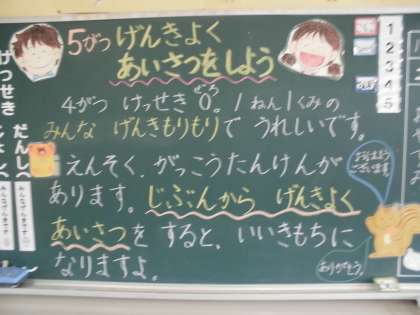 5がつ げんきよく
あいさつをしよう
4がつ けっせき 0。1ねん1くみの
ぜろ
みんな げんきもりもりで うれしいです。
えんそく、がっこうたんけんが
あります。じぶんから げんきよく
あいさつを すると、いいきもちに
なりますよ。
おはよう
ございます
ありがとう。
けっせき
だんし
じょし
みんなげんきです
みんなげんきです
1
2
3
4
5